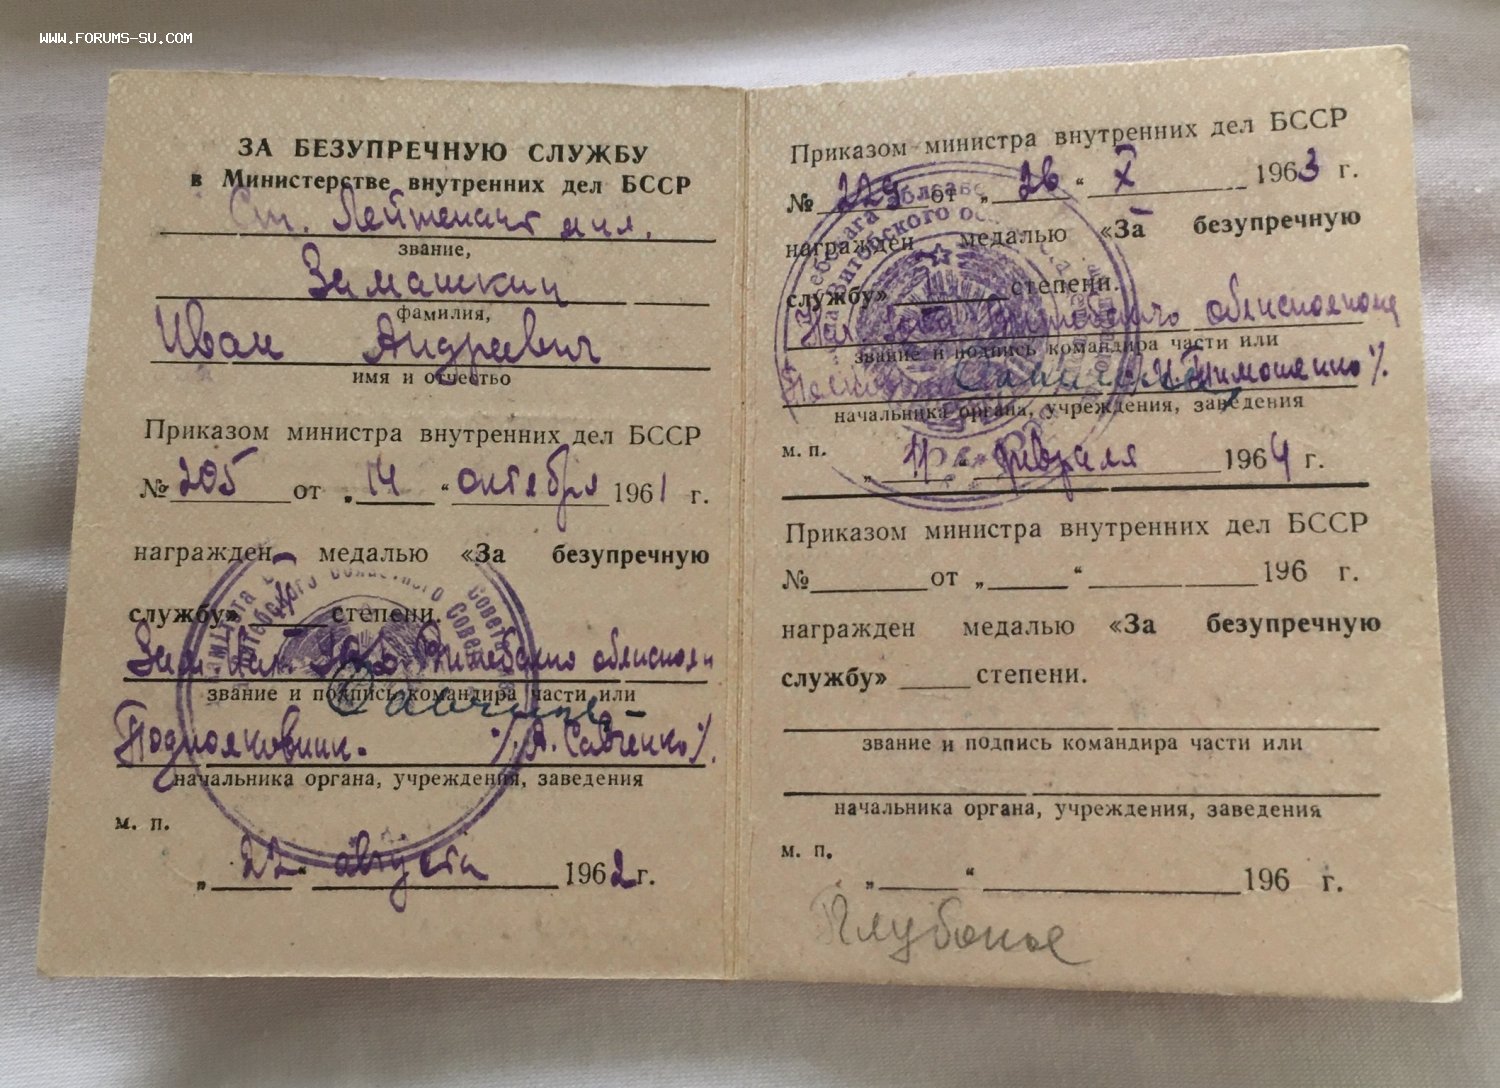 WWW.FORUMS-SU.COM
ЗА БЕЗУПРЕЧНУЮ СЛУЖБУ
в Министерстве внутренних дел БССР
Ст. Лейтенант мил.
звание,
Зимашкин
фамилия,
Иван Андреевич
имя и отчество
Приказом министра внутренних дел БССР
№ 205 от „ 14 “ октября 1961 г.
награжден медалью «За безупречную
службу» степени.
Зам Нач. Витебского облисполк
звание и подпись командира части или
Подполковник. /А. Савченко/.
начальника органа, учреждения, заведения
м. п.
„ 22 “ августа 1962 г.
Приказом министра внутренних дел БССР
№ 229 от „ 26 “ X 1963 г.
награжден медалью «За безупречную
службу» степени.
Нач. облисполкома
звание и подпись командира части или
Тимошенко/.
начальника органа, учреждения, заведения
м. п.
„ 11 “ февраля 1964 г.
Приказом министра внутренних дел БССР
№ от „ “ 196 г.
награжден медалью «За безупречную
службу» степени.
звание и подпись командира части или
начальника органа, учреждения, заведения
м. п.
„ “ 196 г.
Глубокое